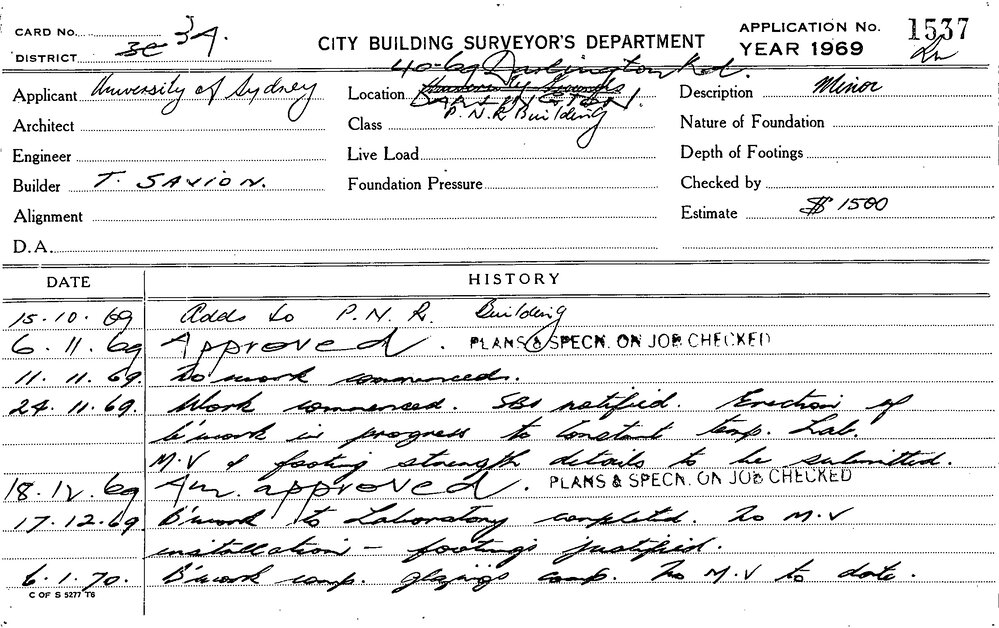 CARD No. 3A.
DISTRICT 3C
CITY BUILDING SURVEYOR'S DEPARTMENT
APPLICATION No. 1537
YEAR 1969
40-69 Darlington Rd.
Applicant University of Sydney
Location University Grounds
DARLINGTON.
Description Minor
Architect
Class P.N.R Building
Nature of Foundation
Engineer
Live Load
Depth of Footings
Builder T. SAVION.
Foundation Pressure
Checked by
Alignment
Estimate $ 1500
D.A.
DATE HISTORY
15.10.69 Adds to P.N.R. Building
6.11.69 Approved. PLANS & SPECN. ON JOB CHECKED
11.11.69. No work commenced.
24.11.69. Work commenced. SBS notified. Erection of
b'work in progress to Constant temp. Lab.
M.V & footing strength details to be submitted.
18.12.69 Am. approved. PLANS & SPECN. ON JOB CHECKED
17.12.69 B'work to Laboratory completed. No M.V
installation – footings justified.
6.1.70. B'work comp. glazings comp. No M.V to date.
C OF S 5277 T6